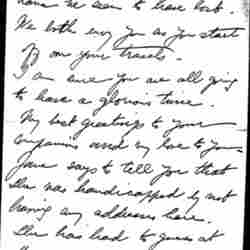 we seem to have lost.
We both envy you as you start
off on your travels.
I am sure you are all going
to have a glorious time.
My best greetings to your
companions and my love to you
Jane says to tell you that
she was handicapped by not
having any addresses here.
She has had to guess at